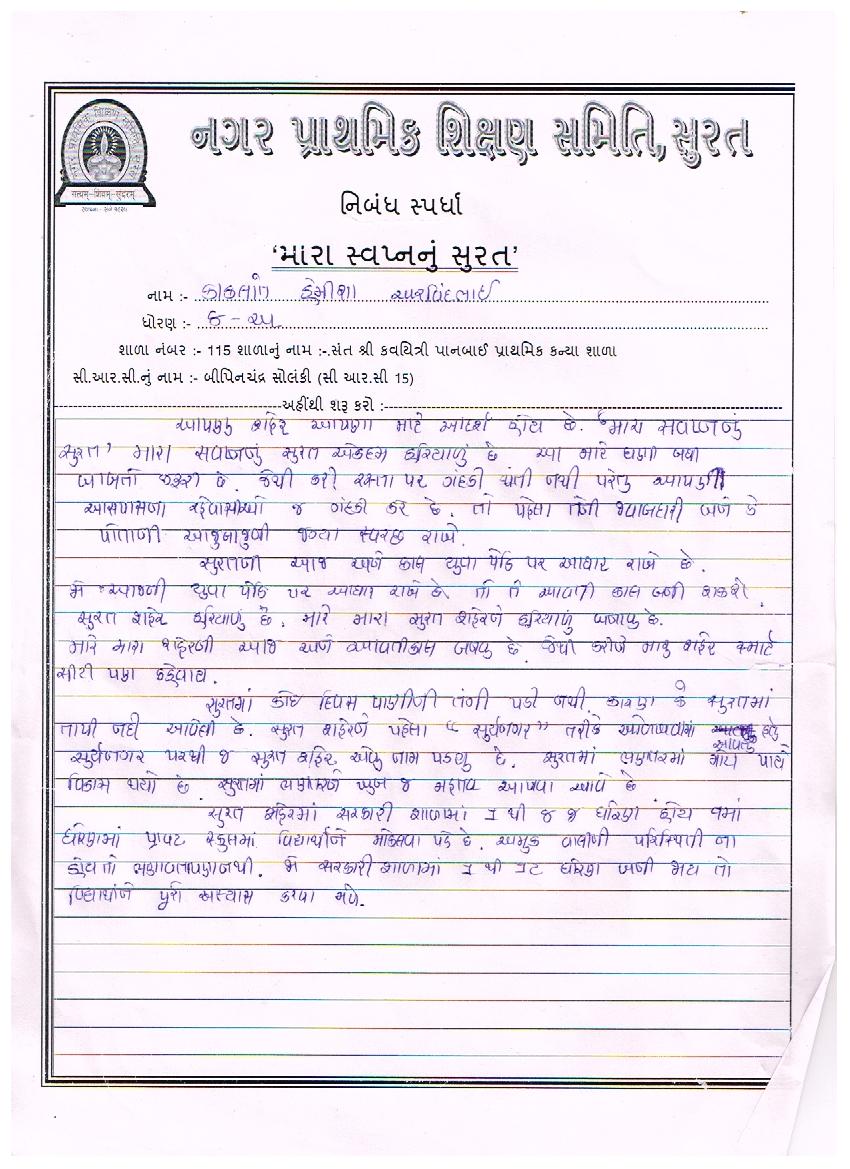 નગર પ્રાથમિક શિક્ષણ સમિતિ, સુરત
સત્યમ્-શિવમ્-સુંદરમ્
નિબંધ સ્પર્ધા
‘મારા સ્વપ્નનું સુરત’
નામ :- હેમીશા અરવિંદભાઈ
ધોરણ :- ૮ - અ
શાળા નંબર :- 115 શાળાનું નામ :-.સંત શ્રી કવયિત્રી પાનબાઈ પ્રાથમિક કન્યા શાળા
સી.આર.સી.નું નામ :- બીપિનચંદ્ર સોલંકી (સી આર.સી 15)
અહીંથી શરૂ કરો :-
આપણુ શહેર આપણા માટે આદર્શ હોય છે. "મારા સવપ્નનું
સુરત" મારા સવપ્નનું સુરત એકદમ હરિયાળું છે આ માટે ઘણી બધી
બાબતો જરૂરી છે. જેથી કરી રસ્તા પર ગંદકી થતી નથી પરંતુ આપણી
આસપાસના રહેવાસીઓ જ ગંદકી કરે છે. તો પહેલા તેની જવાબદારી બને કે
પોતાની આજુબાજુની જગ્યા સ્વચ્છ રાખે.
સુરતની આજ અને કાલ યુવા પેઢિ પર આધાર રાખે છે.
મે આજની યુવા પેઢિ પર આધાર રાખે છે. તો તે આવતી કાલ બની શકશે.
સુરત શહેર હરિયાળું છે. મારે મારા સુરત શહેરને હરિયાળું બનાવુ છે.
મારે મારા શહેરની આજ અને આવતીકાલ બનવુ છે. જેથી કરીને મારુ શહેર સ્માર્ટ
સીટી પણ કહેવાય.
સુરતમાં કોઇ દિવસ પાણીની તંગી પડી નથી. કારણ કે સુરતમાં
તાપી નદી આવેલી છે. સુરત શહેરને પહેલા "સુર્યનગર" તરીકે ઓળખવામાં આવતુ હતુ
સુર્યનગર પરથી જ સુરત શહેર એવુ નામ પડ્યુ છે. સુરતમાં ભણતરમાં
વિકાસ થયો છે. સુરતમાં ભણતરને ખુબ જ મહત્વ આપવા આવે છે
સુરત શહેરમાં સરકારી શાળામાં ૧ થી ૮ જ ધોરણ હોય ૯માં
ધોરણમાં પ્રાવેટ સ્કુલમાં વિદ્યાર્થીને મોકલવા પડે છે. અમુક વાલીની પરિસ્થિતી ના
હોય તો ભણાવતાપણ નથી. મે સરકારી શાળામાં ૧ થી ૧૨ ધોરણ બની જાય તો
વિદ્યાર્થીને પૂરો અભ્યાસ કરવા મળે.